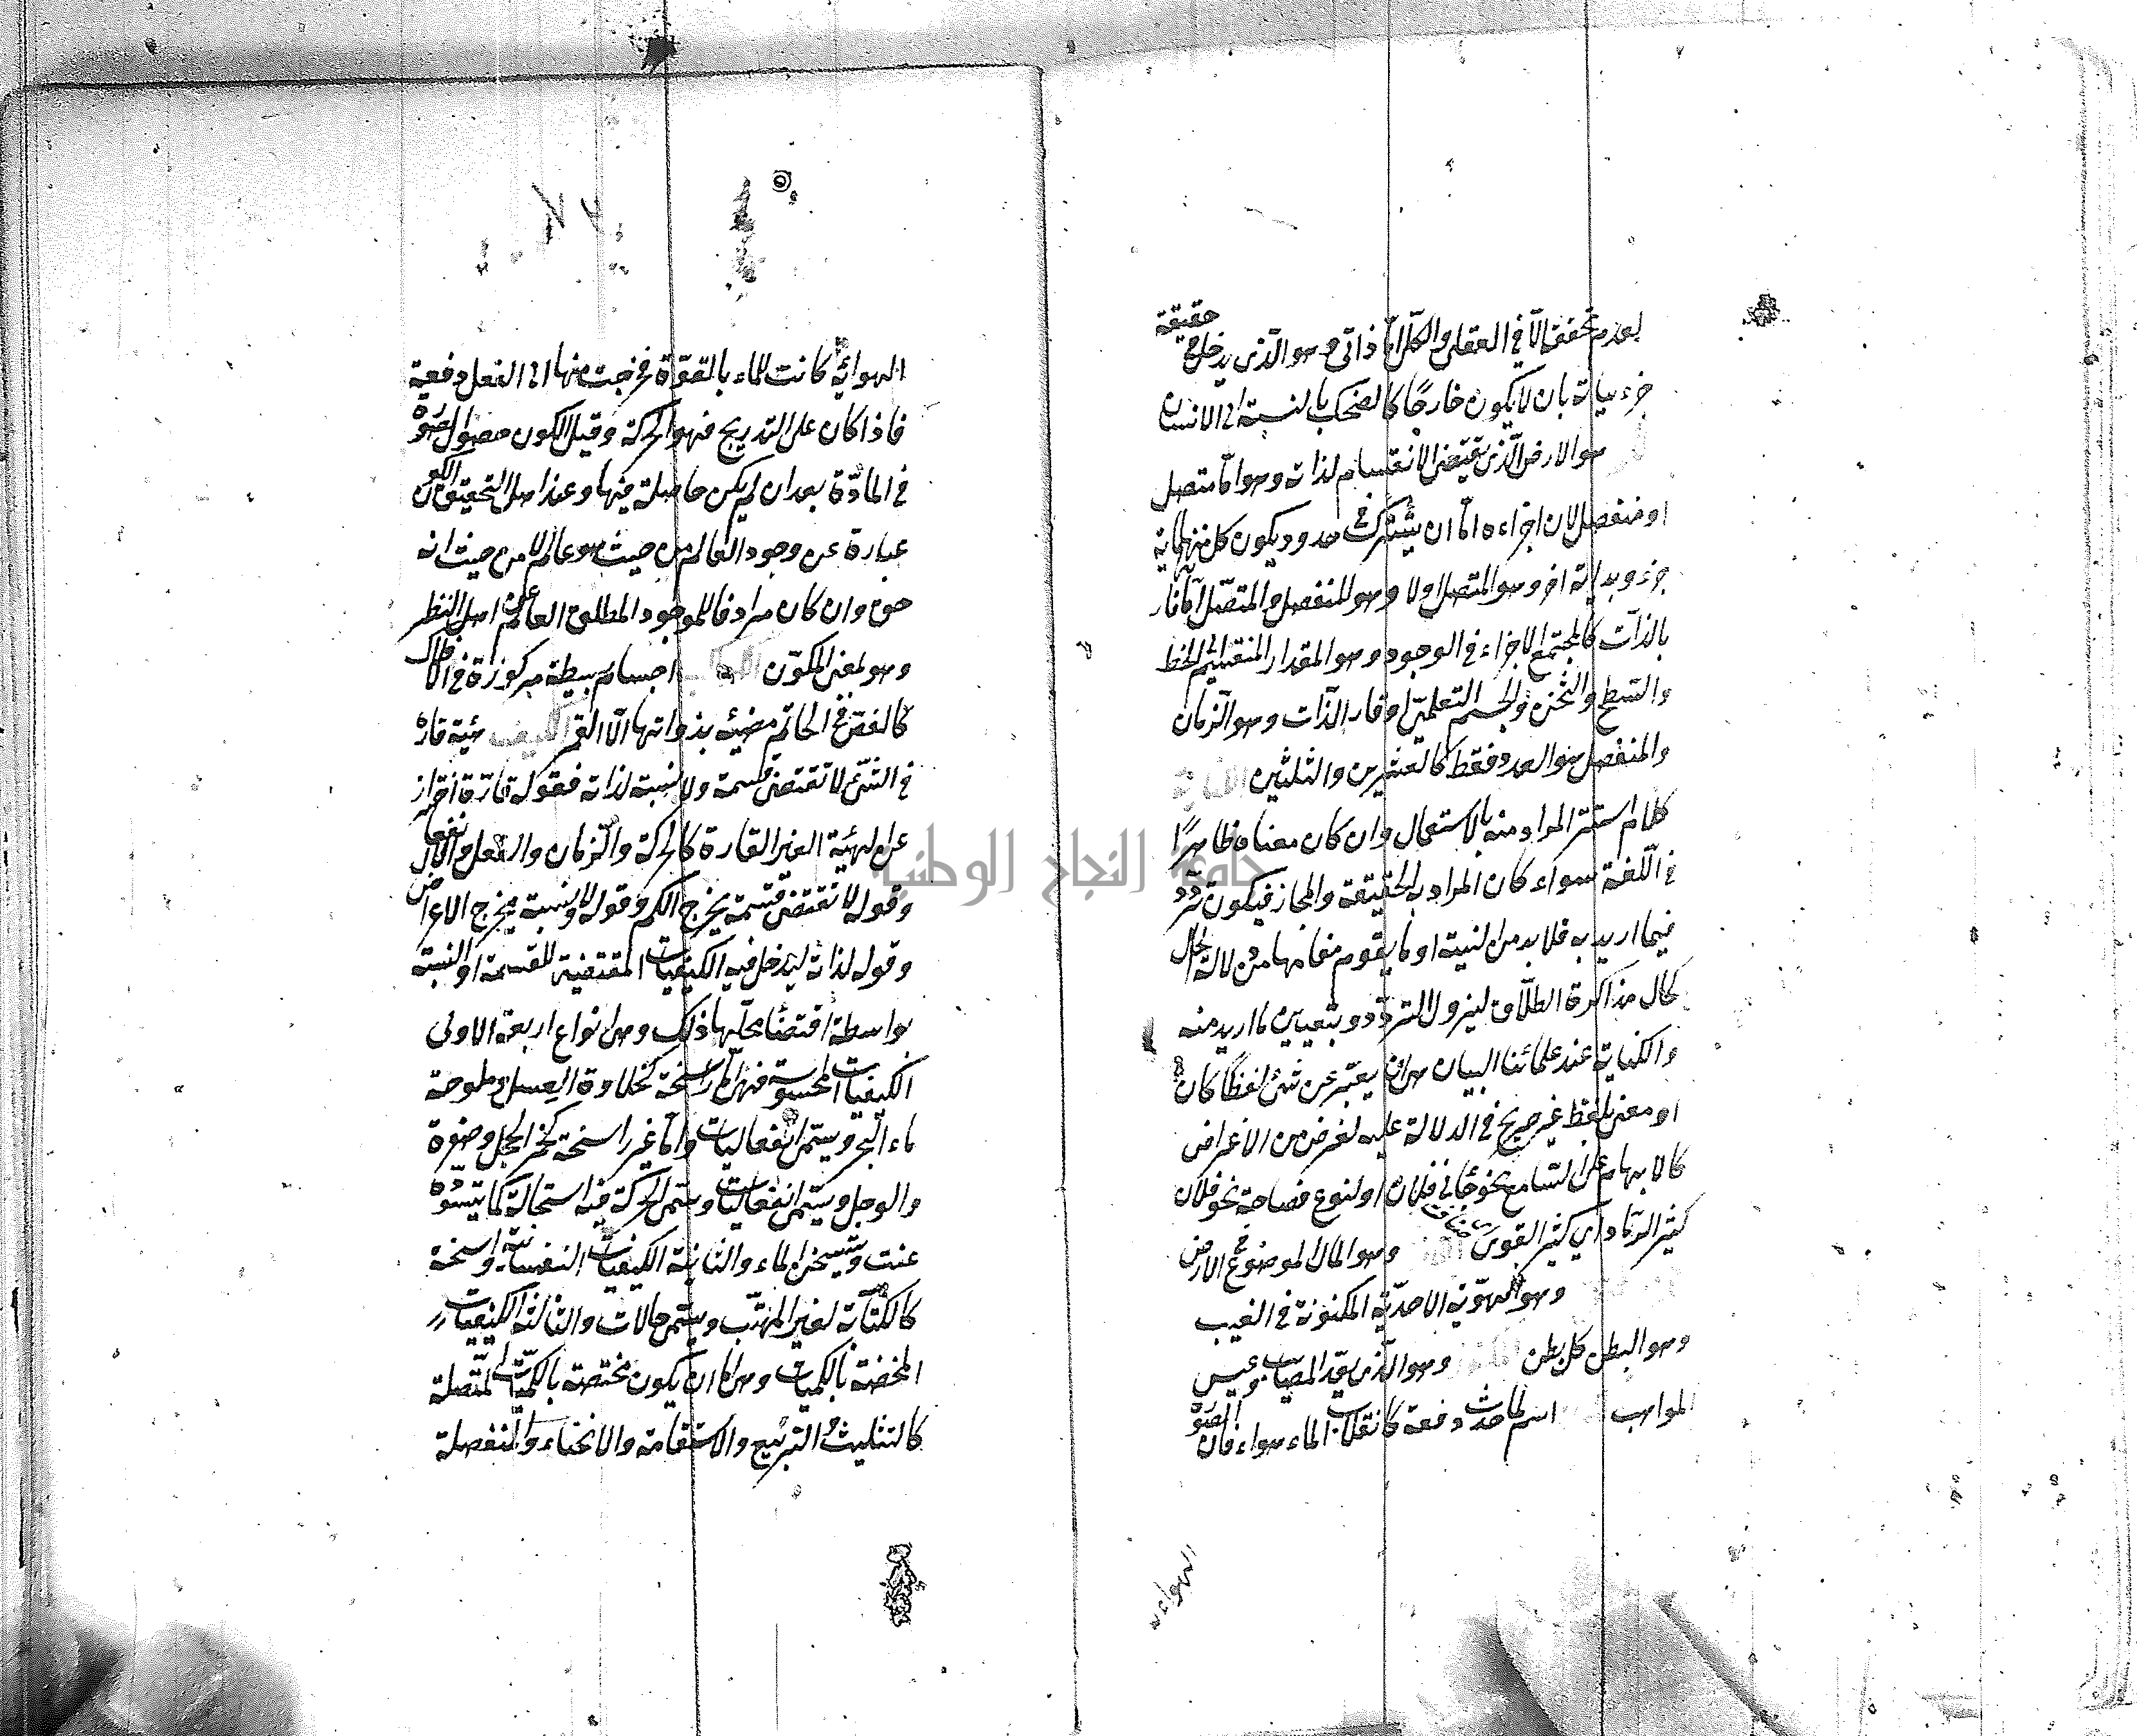 لعدم تحققها الا في العقل والكلي اما ذاتي وهو الذي يدخل في حقيقة
جزءياته بان لا يكون خارجا كالضحك بالنسبة الى الانسان
هو العرض الذي يقتضي الانقسام لذاته وهو اما متصل
او منفصل لان اجزاءه اما ان يشترك في حدود يكون كل منها نهاية
جزء وبداية اخر وهو المتصل اولا وهو المنفصل والمتصل اما قار
بالذات كالمجتمع الاجزاء في الوجود وهو المقدار المنقسم الى الخط
والسطح والثخن والجسم التعليمي او قار الذات وهو الزمان
والمنفصل هو العدد فقط كالعشرين والثلثين
كلام استتر المراد منه بالاستعمال وان كان معناه ظاهرا
في اللغة سواء كان المراد به الحقيقة والمجاز فيكون تردد
فيما اريد به فلا بد من النية او ما يقوم مقامها من دلالة الحال
كحال مذاكرة الطلاق ليزول التردد وبتعيين ما اريد منه
والكناية عند علمائنا البيان هي ان يعبر عن شئ لفظا كان
او معنى بلفظ غير صريح في الدلالة عليه لغرض من الاغراض
كالابهام على السامع نحو جاني فلان او لنوع فصاحة نحو فلان
كثير الرماد اي كثير القرى وهو المال الموضوع في الارض
وهو الهوية الاحدية المكنونة في الغيب
وهو ابطن كل بطن وهو الذي يعد المصايب وعيس
المواهب اسم لما حدث دفعة كانقلاب الماء هواء فان الصورة
الهوائية
الهوائية كانت للماء بالقوة فخرجت منها الى الفعل دفعة
فاذا كان على التدريج فهو الحركة وقيل الكون حصول الصورة
في المادة بعد ان لم يكن حاصلة فيها وعند اهل التحقيق الكون
عبارة عن وجود العالم من حيث هو عالم لا من حيث انه
حق وان كان مرادفا للموجود المطلق العام عند اهل النظر
وهو لمعنى المكون اجسام بسيطة مركوزة في الافلاك
كالفص في الخاتم مضيئة بذواتها الا القمر الكيف هيئة قارة
في الشئ لا تقتضي قسمة ولا نسبة لذاته فقوله قارة احتراز
عن الهيئة الغير القارة كالحركة والزمان والفعل والانفعال
وقوله لا تقتضي قسمة يخرج الكم وقوله ولا نسبة يخرج الاعراض
وقوله لذاته ليدخل فيه الكيفيات المقتضية للقسمة او النسبة
بواسطة اقتضا محلها ذلك وهي انواع اربعة الاولى
الكيفيات المحسوسة فهي اما راسخة كحلاوة العسل وملوحة
ماء البحر ويسمى انفعاليات واما غير راسخة كحمرة الخجل وصفرة
والوجل ويسمى انفعاليات ويسمى الحركة فيه استحالة كما يتسود
عنت ويتسخن الماء والثانية الكيفيات النفسانية وراسخة
كالكتابة لغير المهذب ويسمى حالات والثالثة الكيفيات
المختصة بالكميات وهي اما ان يكون مختصة بالكميات المتصلة
كالتثليث والتربيع والاستقامة والانحناء والمنفصلة
جامعة النجاح الوطنية